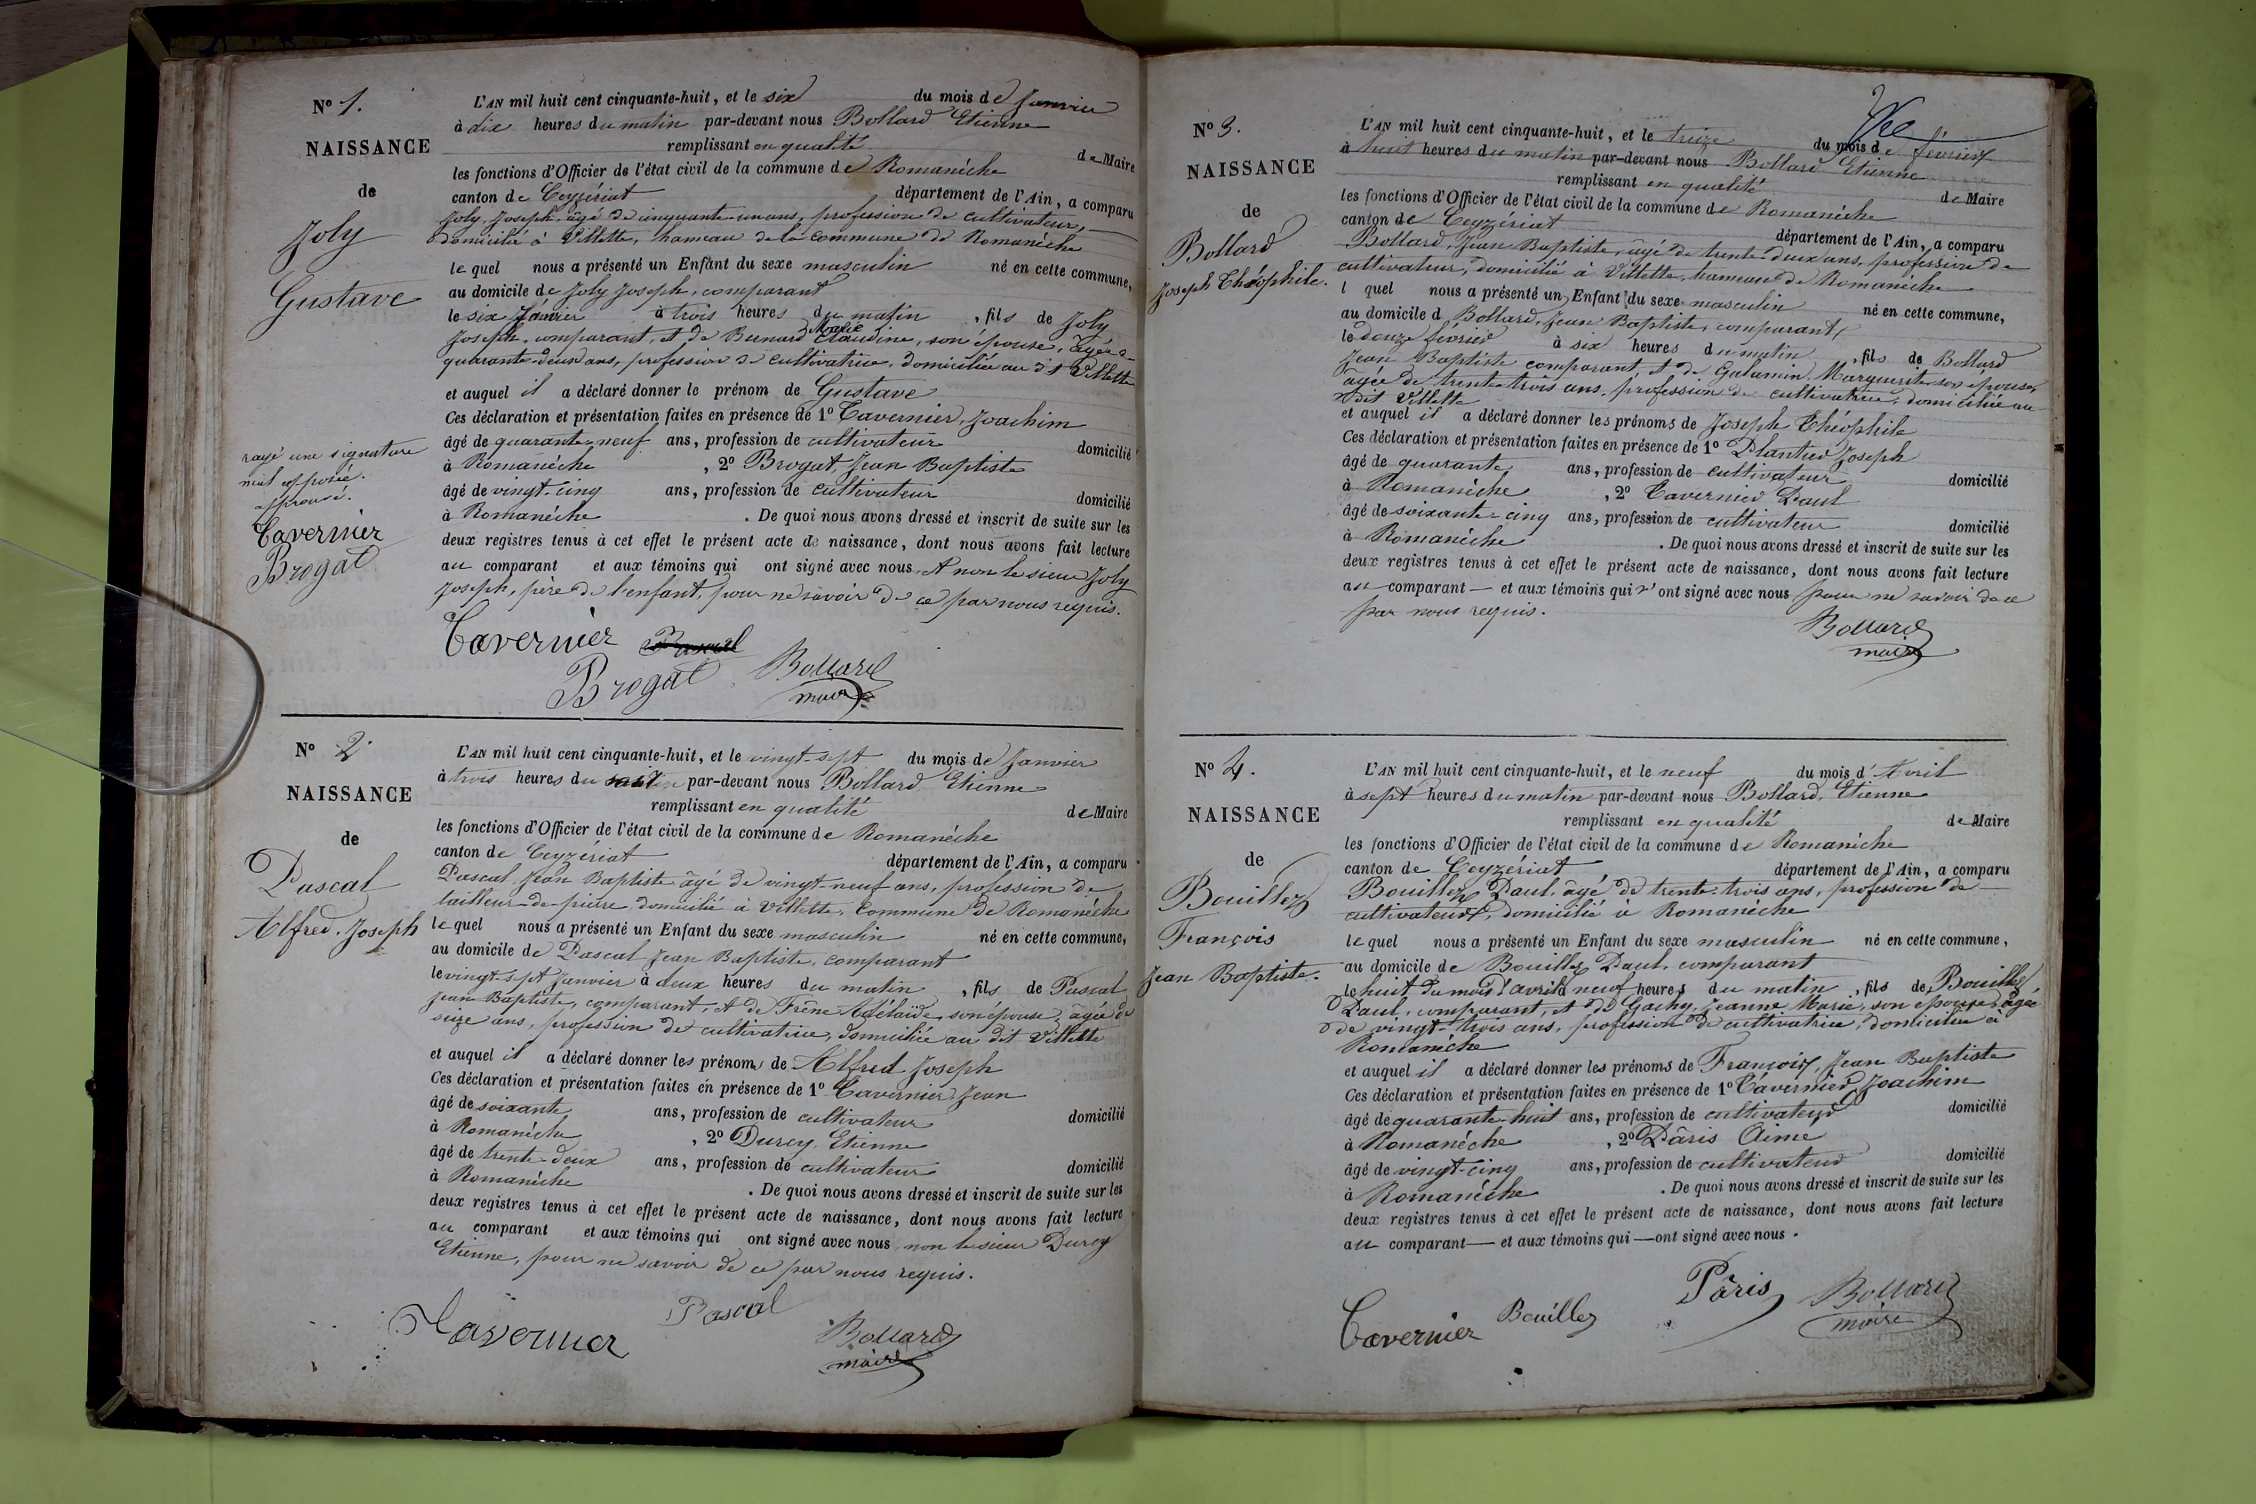 N° 1.
NAISSANCE
de
Joly
Gustave
rayé une signature
mal apposée.
approuvé.
Tavernier
Brogat
L'AN mil huit cent cinquante-huit, et le six du mois de Janvier
à dix heures du matin par-devant nous Bollard Etienne
remplissant en qualité de Maire
les fonctions d'Officier de l'état civil de la commune de Romanêche
canton de Ceyzériat département de l'Ain, a comparu
Joly, Joseph âgé de cinquante-un ans, profession de cultivateur,
domicilié à Villette, hameau de la commune de Romanêche
lequel nous a présenté un Enfant du sexe masculin né en cette commune,
au domicile de Joly Joseph, comparant
le six Janvier à trois heures du matin, fils de Joly
Joseph, comparant, et de Bernard Marie Claudine, son épouse, âgée de
quarante-deux ans, profession de cultivatrice, domiciliée au dit Villette
et auquel il a déclaré donner le prénom de Gustave
Ces déclaration et présentation faites en présence de 1° Tavernier, Joachim
âgé de quarante-neuf ans, profession de cultivateur domicilié
à Romanêche, 2° Brogat, Jean Baptiste
âgé de vingt-cinq ans, profession de cultivateur domicilié
à Romanêche. De quoi nous avons dressé et inscrit de suite sur les
deux registres tenus à cet effet le présent acte de naissance, dont nous avons fait lecture
au comparant et aux témoins qui ont signé avec nous, et non le sieur Joly
Joseph, père de l'enfant, pour ne savoir de ce par nous requis.
Tavernier Pascal
Brogat Bollard
maire
N° 2
NAISSANCE
de
Pascal
Alfred Joseph
L'AN mil huit cent cinquante-huit, et le vingt-sept du mois de Janvier
à trois heures du par-devant nous Bollard Etienne
remplissant en qualité de Maire
les fonctions d'Officier de l'état civil de la commune de Romanêche
canton de Ceyzériat département de l'Ain, a comparu
Pascal Jean Baptiste âgé de vingt-neuf ans, profession de
tailleur-de-pierre domicilié à Villette, commune de Romanêche
lequel nous a présenté un Enfant du sexe masculin né en cette commune,
au domicile de Pascal Jean Baptiste, comparant
le vingt-sept Janvier à deux heures du matin, fils de Pascal
Jean-Baptiste, comparant, et de Frêne Adélaïde, son épouse, âgée de
seize ans, profession de cultivatrice, domiciliée au dit Villette
et auquel il a déclaré donner les prénoms de Alfred Joseph
Ces déclaration et présentation faites en présence de 1° Tavernier Jean
âgé de soixante ans, profession de cultivateur domicilié
à Romanêche, 2° Durey Etienne
âgé de trente-deux ans, profession de cultivateur domicilié
à Romanêche. De quoi nous avons dressé et inscrit de suite sur les
deux registres tenus à cet effet le présent acte de naissance, dont nous avons fait lecture
au comparant et aux témoins qui ont signé avec nous non le sieur Durey
Etienne, pour ne savoir de ce par nous requis.
Tavernier Pascal
Bollard
maire
N° 3.
NAISSANCE
de
Bollard
Joseph Théophile.
L'AN mil huit cent cinquante-huit, et le treize du mois de février
à huit heures du matin par-devant nous Bollard Etienne
remplissant en qualité de Maire
les fonctions d'Officier de l'état civil de la commune de Romanêche
canton de Ceyzériat département de l'Ain, a comparu
Bollard, Jean Baptiste, âgé de trente-deux ans, profession de
cultivateur, domicilié à Villette, hameau de Romanêche
l quel nous a présenté un Enfant du sexe masculin né en cette commune,
au domicile d Bollard, Jean Baptiste, comparant,
le douze février à six heures du matin, fils de Bollard
Jean Baptiste comparant, et de Galumin Marguerite son épouse,
âgée de trente-trois ans, profession de cultivatrice, domiciliée au
dit Villette
et auquel il a déclaré donner les prénoms de Joseph Théophile
Ces déclaration et présentation faites en présence de 1° Plantier Joseph
âgé de quarante ans, profession de cultivateur domicilié
à Romanêche, 2° Tavernier Paul
âgé de soixante-cinq ans, profession de cultivateur domicilié
à Romanêche. De quoi nous avons dressé et inscrit de suite sur les
deux registres tenus à cet effet le présent acte de naissance, dont nous avons fait lecture
au comparant — et aux témoins qui n'ont signé avec nous pour ne savoir de ce
par nous requis.
Bollard
maire
N° 4.
NAISSANCE
de
Bouillez
François
Jean Baptiste.
L'AN mil huit cent cinquante-huit, et le neuf du mois d'Avril
à sept heures du matin par-devant nous Bollard, Etienne
remplissant en qualité de Maire
les fonctions d'Officier de l'état civil de la commune de Romanêche
canton de Ceyzériat département de l'Ain, a comparu
Bouillez, Paul, âgé de trente-trois ans, profession de
cultivateur, domicilié à Romanêche
lequel nous a présenté un Enfant du sexe masculin né en cette commune,
au domicile de Bouillez Paul, comparant
le huit du mois d'avril à neuf heures du matin, fils de Bouillez
Paul, comparant, et de Gachy, Jeanne Marie, son épouse, âgée
de vingt-trois ans, profession de cultivatrice, domiciliée à
Romanêche
et auquel il a déclaré donner les prénoms de François, Jean Baptiste
Ces déclaration et présentation faites en présence de 1° Tavernier Joachim
âgé de quarante-huit ans, profession de cultivateur domicilié
à Romanêche, 2° Pâris Aimé
âgé de vingt-cinq ans, profession de cultivateur domicilié
à Romanêche. De quoi nous avons dressé et inscrit de suite sur les
deux registres tenus à cet effet le présent acte de naissance, dont nous avons fait lecture
au comparant — et aux témoins qui — ont signé avec nous.
Tavernier Bouillez Pâris Bollard
maire